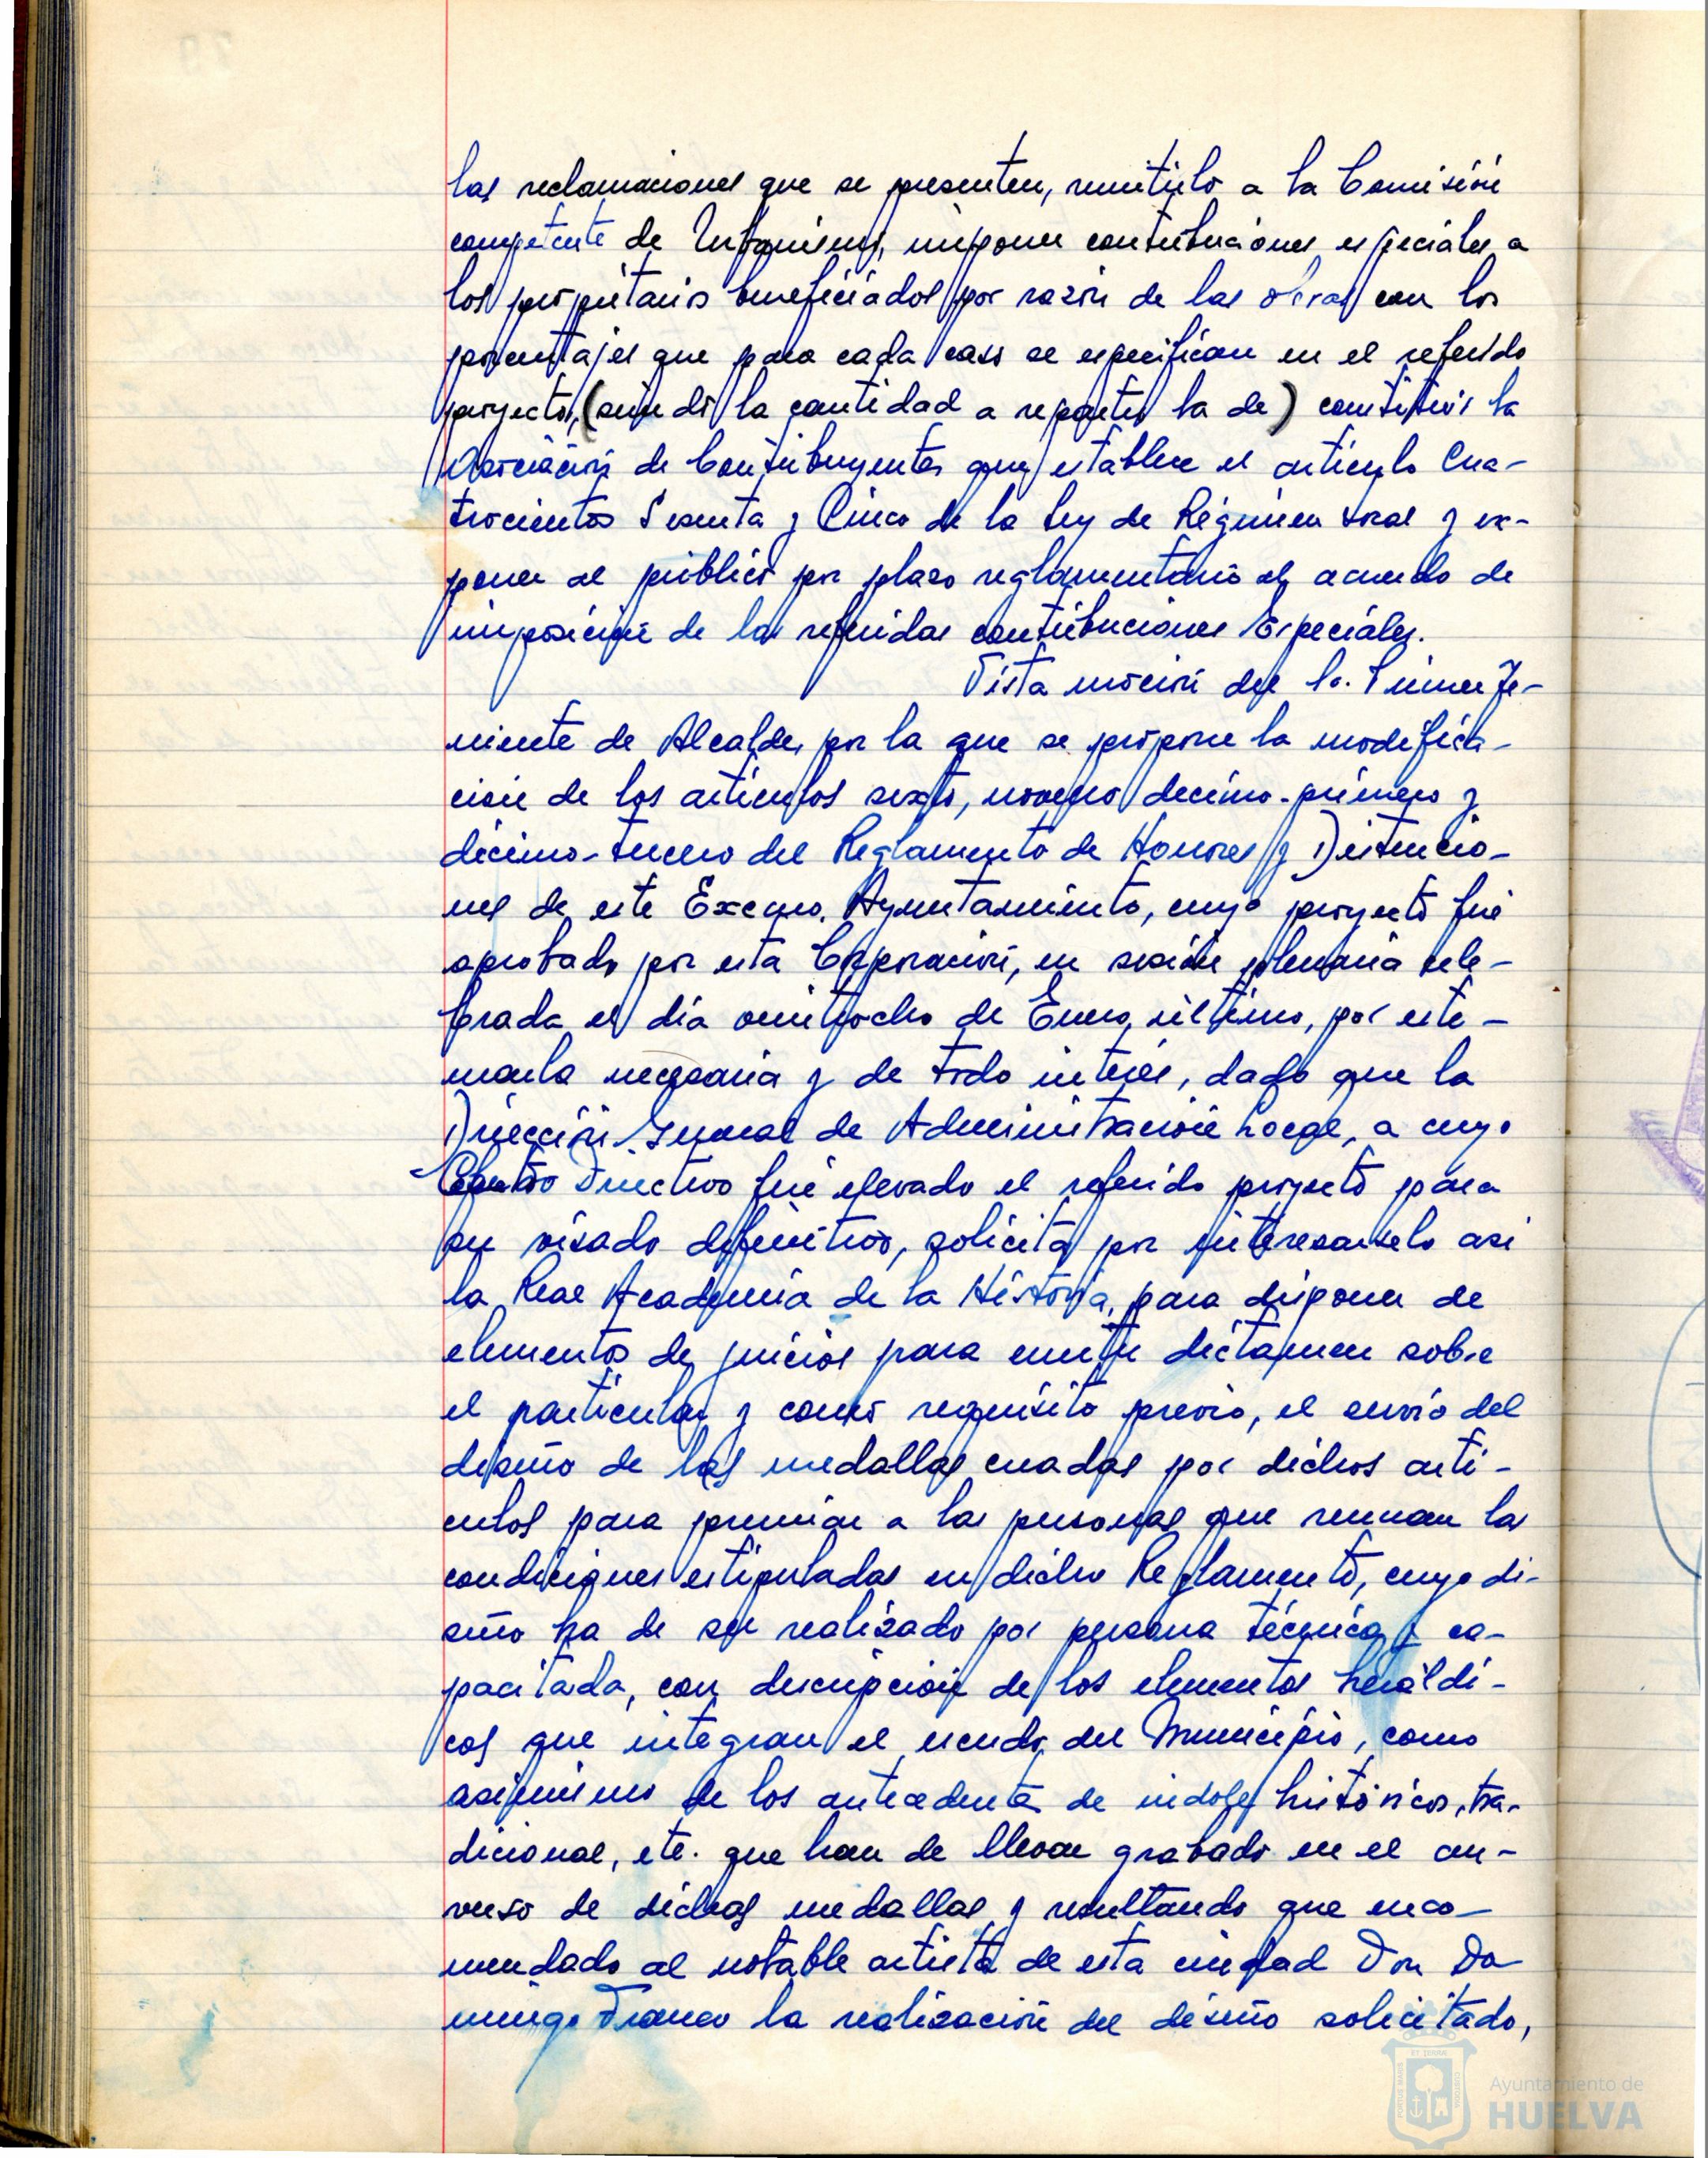 las reclamaciones que se presenten, remitirlo a la Comisión
competente de Urbanismo, imponer contribuciones especiales a
los propietarios beneficiados por razón de las obras con los
porcentajes que para cada caso se especifican en el referido
proyecto, (siendo la cantidad a repartir la de) constituir la
Asociación de Contribuyentes que establece el artículo Cua-
trocientos Sesenta y Cinco de la Ley de Régimen Local y ex-
poner al público por plazo reglamentario el acuerdo de
imposición de las referidas contribuciones Especiales.
Vista moción del Sr. Primer Te-
niente de Alcalde, por la que se propone la modifica-
ción de los artículos sexto, noveno, décimo-primero y
décimo-tercero del Reglamento de Honores y Distincio-
nes de este Excmo. Ayuntamiento, cuyo proyecto fué
aprobado por esta Corporación, en sesión plenaria cele-
brada el día veintiocho de Enero último, por esti-
marla necesaria y de todo interés, dado que la
Dirección General de Administración Local, a cuyo
Centro Directivo fué elevado el referido proyecto para
su visado definitivo, solicita por interesárselo así
la Real Academia de la Historia, para disponer de
elementos de juicios para emitir dictamen sobre
el particular y como requisito previo, el envío del
diseño de las medallas creadas por dichos artí-
culos para premiar a las personas que reunan las
condiciones estipuladas en dicho Reglamento, cuyo di-
seño ha de ser realizado por persona técnica y ca-
pacitada, con descripción de los elementos heráldi-
cos que integran el escudo del Municipio, como
asimismo de los antecedentes de indole histórico, tra-
dicional, etc. que han de llevar grabado en el an-
verso de dichas medallas y resultando que enco-
mendado al notable artista de esta ciudad Don Do
mingo Franco la realización del diseño solicitado,
Ayuntamiento de
HUELVA